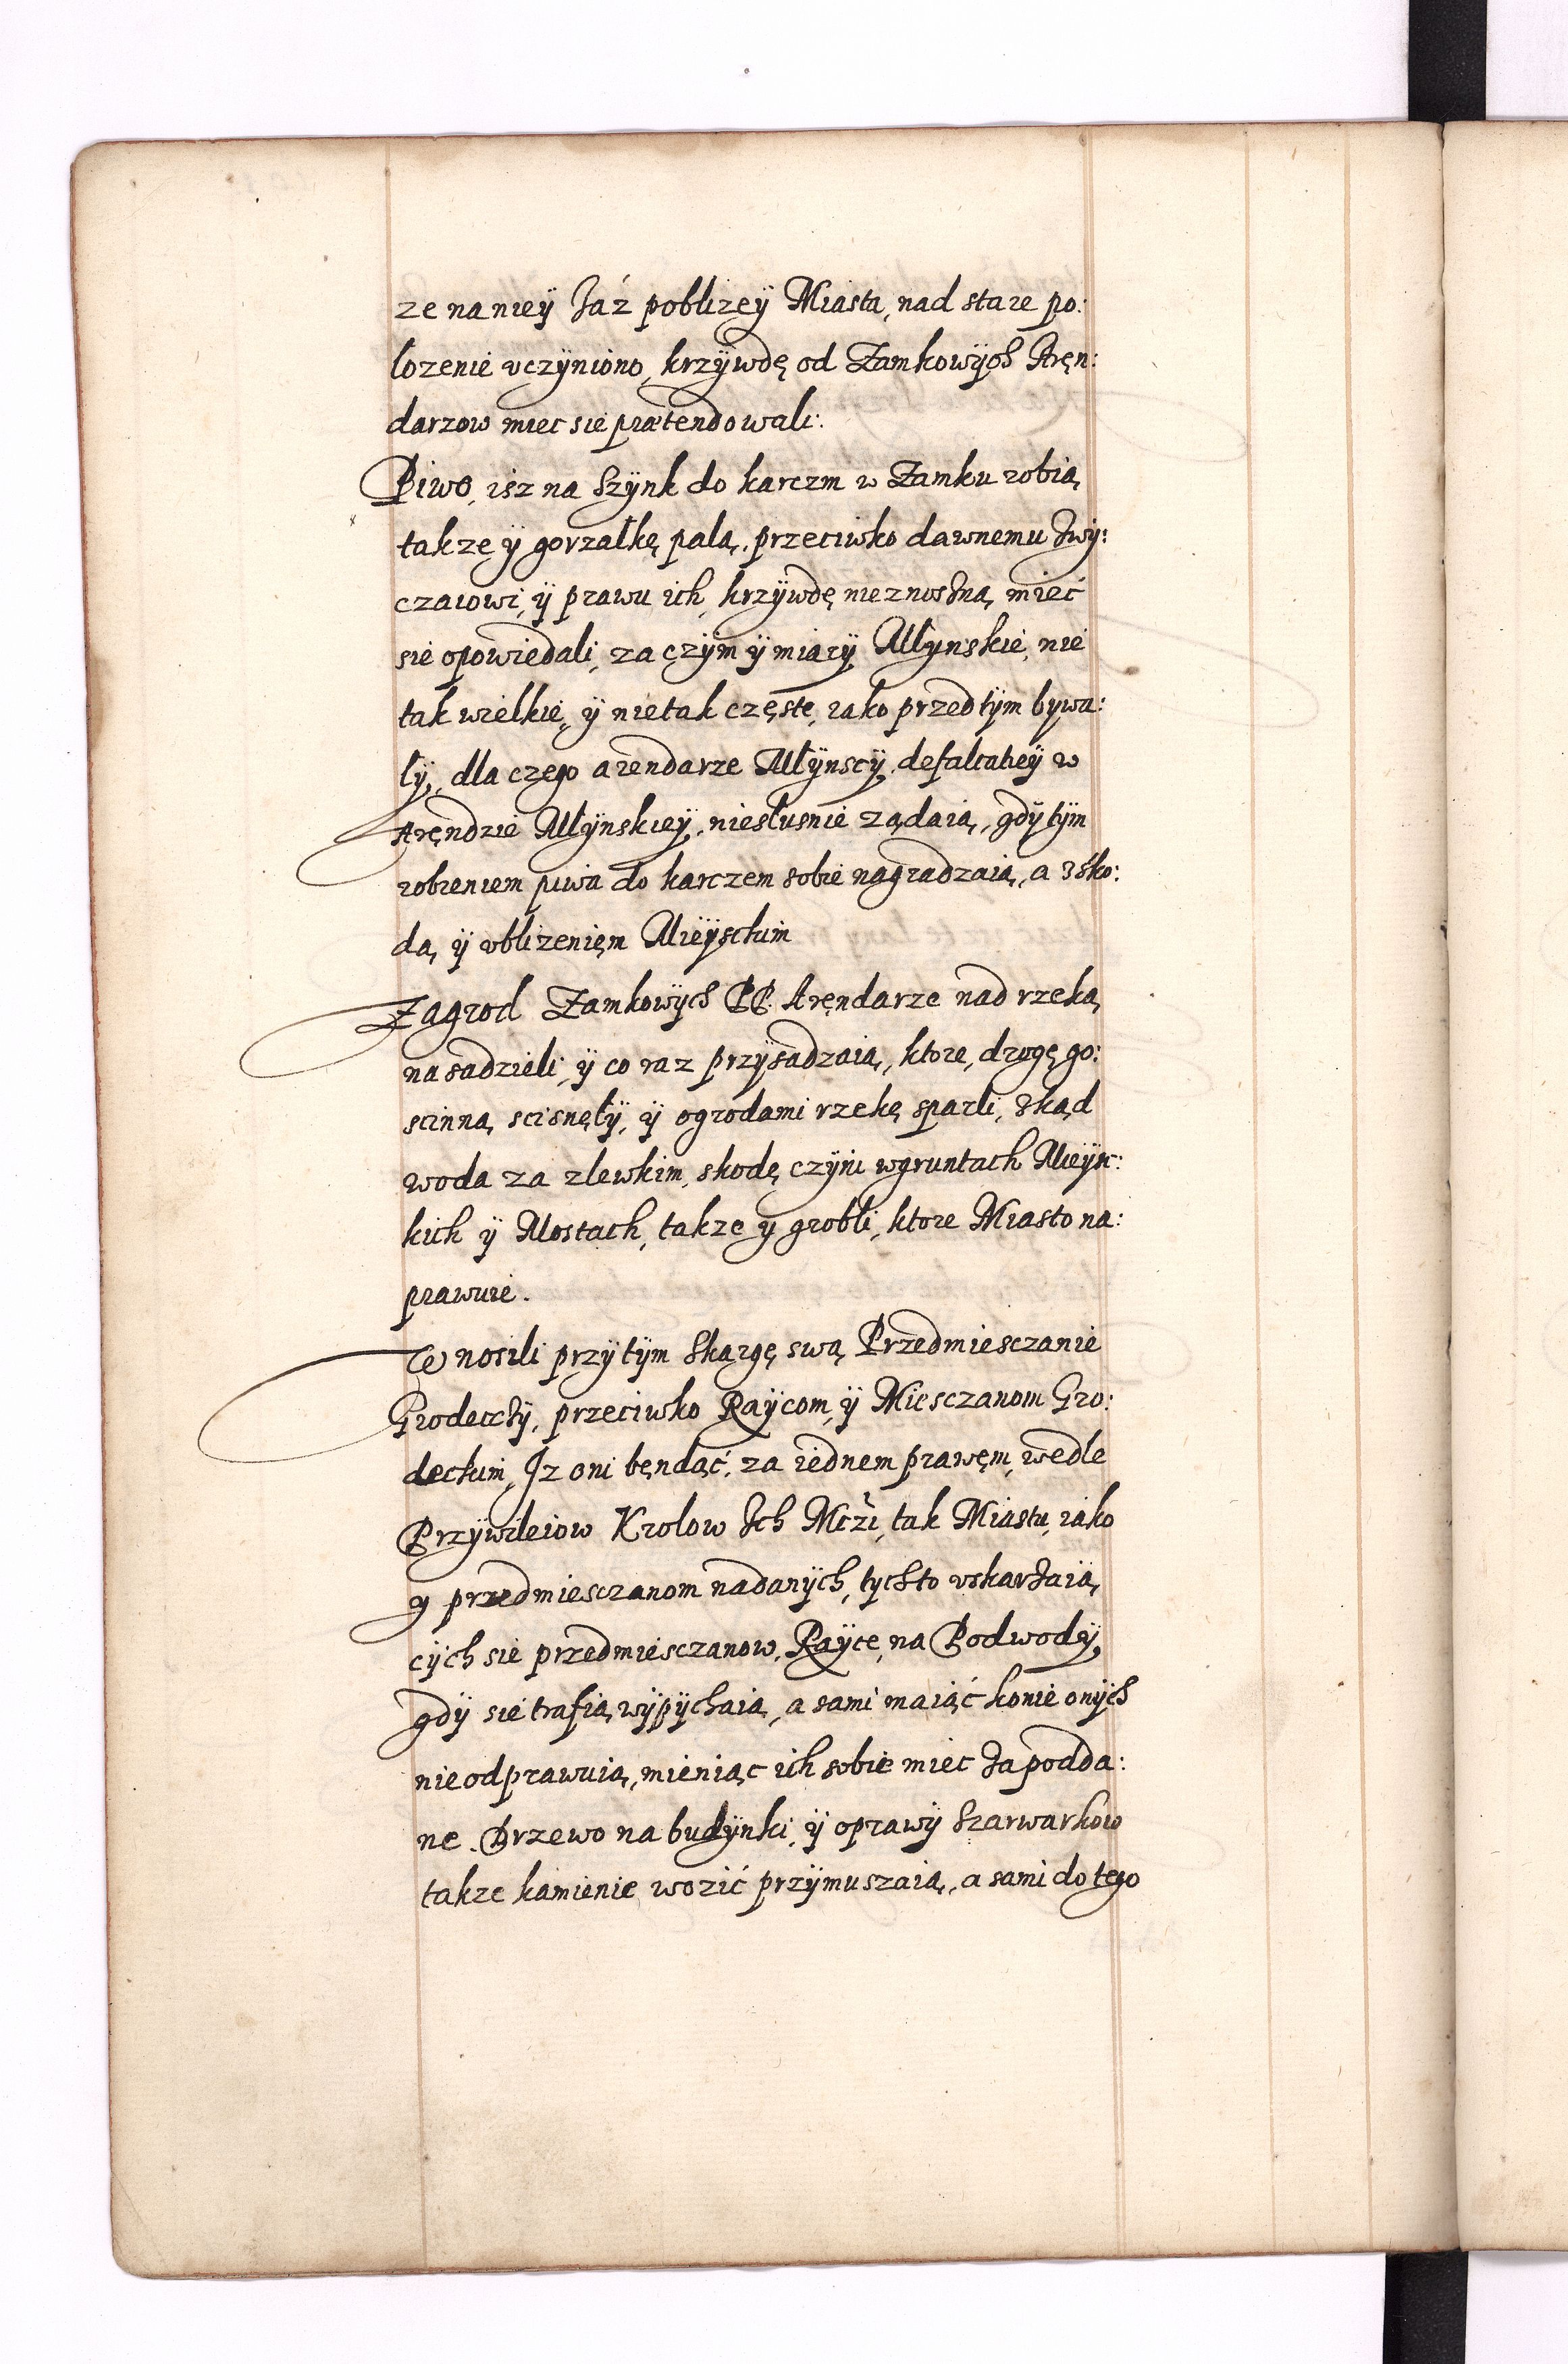 ze na nieÿ Jáz poblizeÿ Miasta, nad stare po:
lozenie vczÿniono, krzÿwdę od Zamkowÿch Aręn:
darzow miec sie prætendowali:
Piwo, isz na Szÿnk do karczm w Zamku robią,
takze ÿ gorzałkę palą, przeciwko dawnemu Zwÿ:
czaiowi, ÿ prawu ich, krzÿwdę nieznosną, mieć
sie opowiedali, za czÿm ÿ miarÿ Młÿnskie, nie
tak wielkie, ÿ nie tak częste, iako przed tÿm bywa:
łÿ, dla czego arendarze Młÿnscÿ, defalcatieÿ w
Aręndzie Młÿnskieÿ, niesłusnie ządaią, gdÿ tÿm
robieniem piwa do karczem sobie nagradzaią, a Sko:
dą, ÿ vbliżenięm Mieÿsckim
Zagrod Zamkowÿch PP. Aręndarze nad rzeką,
nasadzieli, ÿ co raz przÿsadzaią, ktore, drogę go:
scinną, scisnęłÿ, ÿ ogrodami rzekę sparli, Skąd
woda za zlewkim, skodę czÿni w gruntach Mieÿs:
kich ÿ Mostach, takze y grobli, ktore Miasto na:
prawuie.
Wnosili przÿ tÿm Skargę swą Przedmiesczanie
Grodeccÿ, przeciwko Raÿcom, ÿ Miesczanom Gro:
deckim, Iz oni będąć, za iednem prawęm, wedle
Przÿwileiow Krolow Ich Mczi, tak Miastu, iako
y przedmiesczanom nadanÿch, tych to vskarzaią,
cÿch sie przedmiesczanow, Raÿce, na Podwodÿ,
gdÿ sie trafią, wÿpÿchaią, a sami maiąć konie onÿch
nie odprawuią, mieniąc ich sobie miec za podda:
ne. Drzewo na budÿnki, ÿ oprawÿ Szarwarkow
takze kamienie wozić przÿmuszaią, a sami do tego